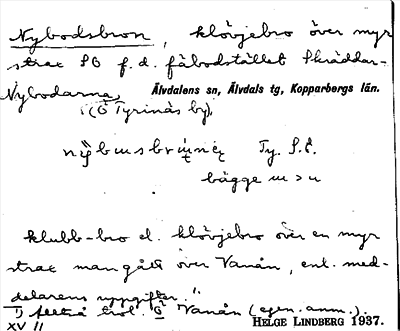 Nybodsbron, klövjebro över myr
strax SO f.d. fäbodstället Skräddar-
Nybodarna, Älvdalens sn, Älvdals tg, Kopparbergs län.
(Ö Tyrinäs by).
Ty. S.E.
bägge ɯ > u
klubb-bro el. klövjebro över en myr
strax man gått över Vanån, enl. med-
delarens uppgifter."
1) Ö Vanån (egen. anm.).
XV 11 HELGE LINDBERG 1937.